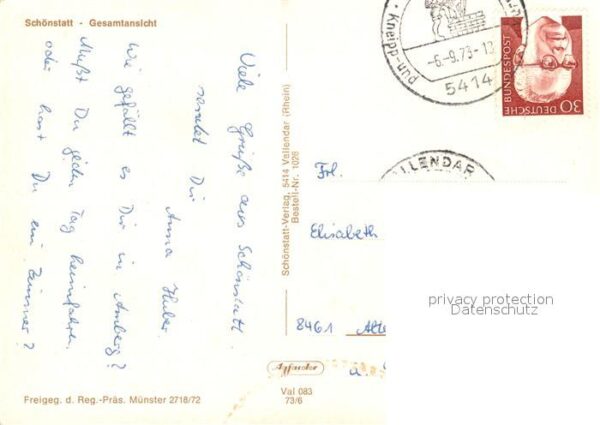 Schönstatt - Gesamtansicht
Viele Grüße aus Schönstatt
sendet Dir
Anna Huber.
Wie gefällt es Dir in Amberg?
Mußt Du jeden Tag heimfahren
oder hast Du ein Zimmer?
Freigeg. d. Reg.-Präs. Münster 2718/72
Schönstatt-Verlag, 5414 Vallendar (Rhein)
Bestell-Nr. 1026
Val 083
73/6
· Kneipp- und
-6.-9.73-
5414
VALLENDAR
DEUTSCHE
BUNDESPOST
30
Frl.
Elisabeth
8461
privacy protection
Datenschutz